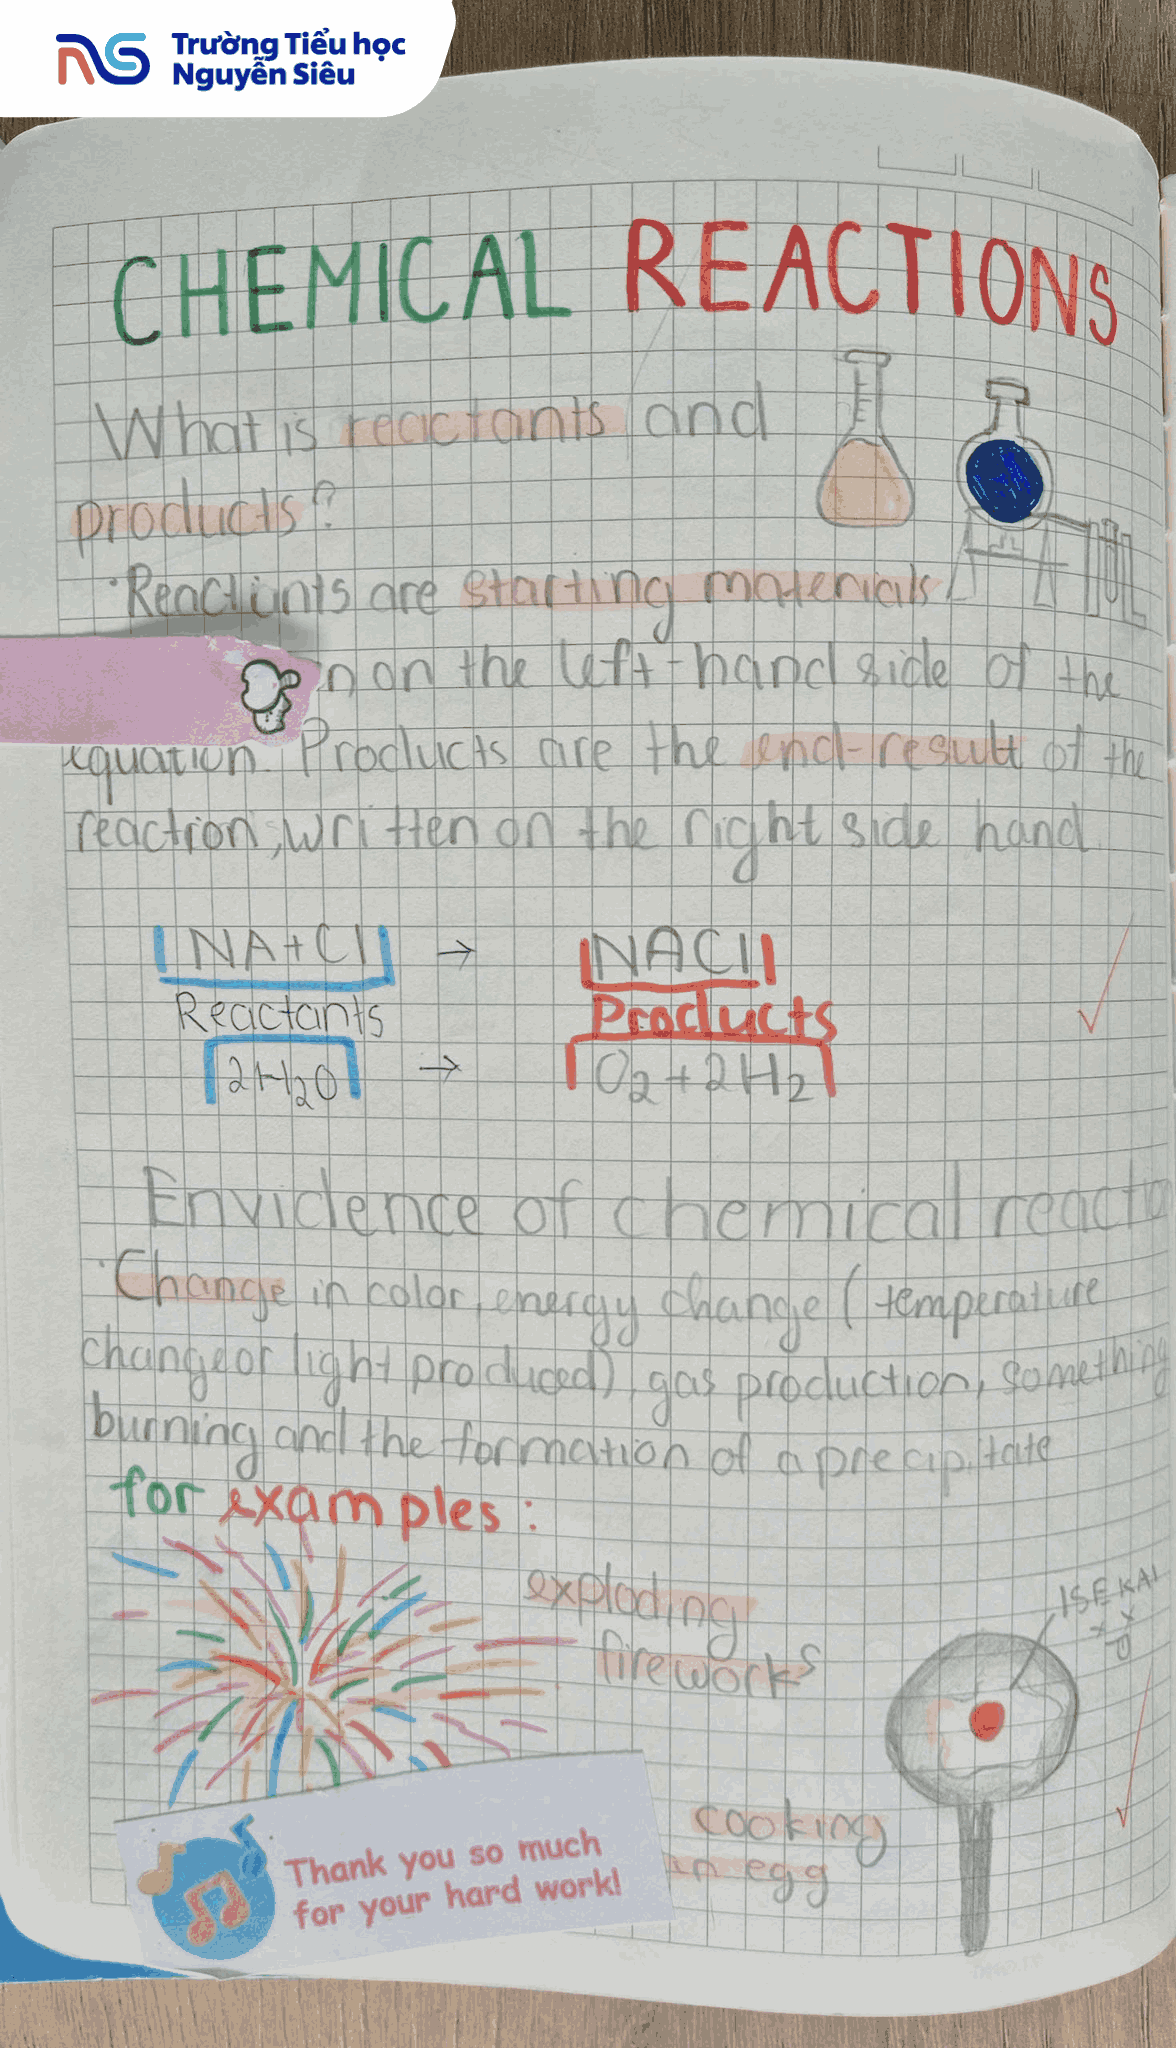 Trường Tiểu học
Nguyễn Siêu
CHEMICAL REACTIONS
What is reactants and
products?
·Reactants are starting materials
n on the left-hand side of the
equation. Products are the end-result of the
reaction, written on the right side hand.
NA+Cl → NACl
Reactants Products
2H₂O → O₂+2H₂
Envidence of chemical reactio
·Change in color, energy change (temperature
change or light produced), gas production, something
burning and the formation of a precipitate
for examples:
exploding
fireworks
ISEKAI
cooking
an egg
Thank you so much
for your hard work!